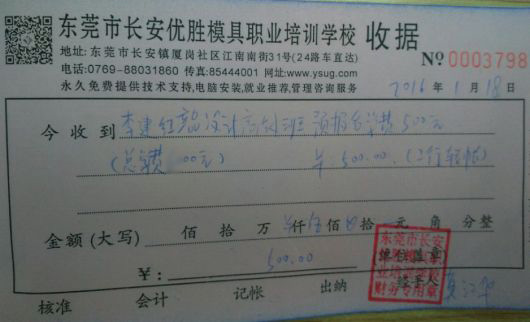 东莞市长安优胜模具职业培训学校 收据
地址:东莞市长安镇厦岗社区江南南街31号(24路车直达)
电话:0769-88031860 传真:85444001 网址:www.ysug.com
永久免费提供技术支持,电脑安装,就业推荐,管理咨询服务
№ 0003798
2016年1月18日
今收到 李建红 设计 班 预报名学费500元
(总费 00元) ¥:500.00.(工行转帐)
金额(大写) 佰 拾 万 仟 伍 佰 拾 元 角 分整
¥: 500.00
单位盖章
经手人
东莞市长安
优胜模具职
业培训学校
财务专用章
核准 会计 记帐 出纳